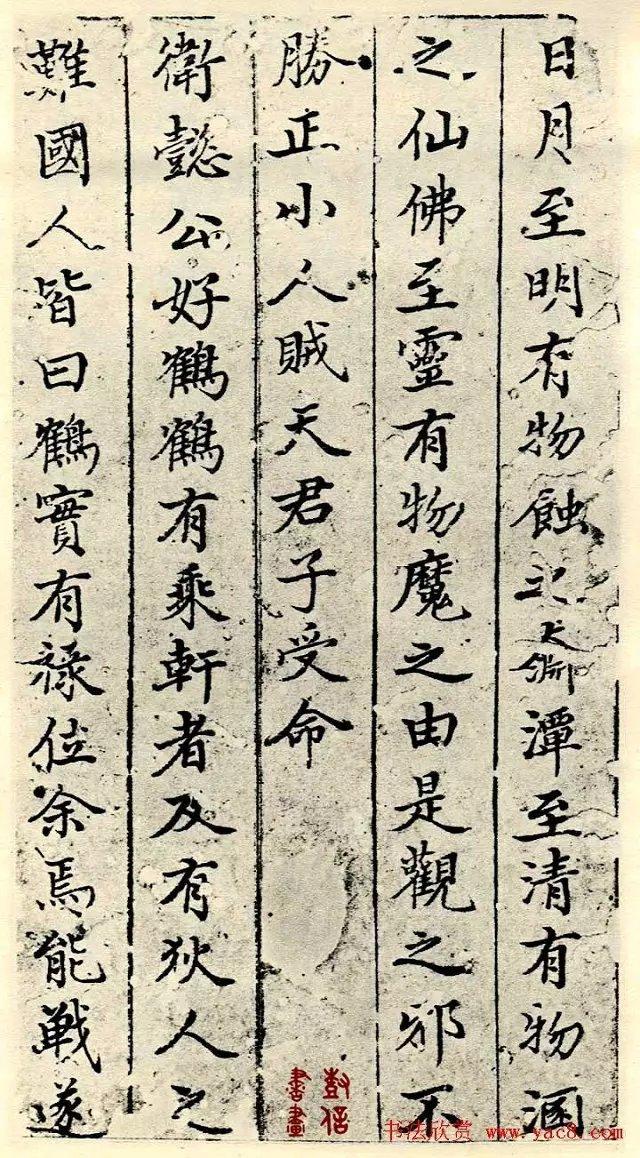 日月至明有物蝕之淵潭至清有物溷
之仙佛至靈有物魔之由是觀之邪不
勝正小人賊天君子受命
衛懿公好鶴鶴有乘軒者及有狄人之
難國人皆曰鶴實有祿位余焉能戰遂
書畫
书法欣赏 www.yac8.com